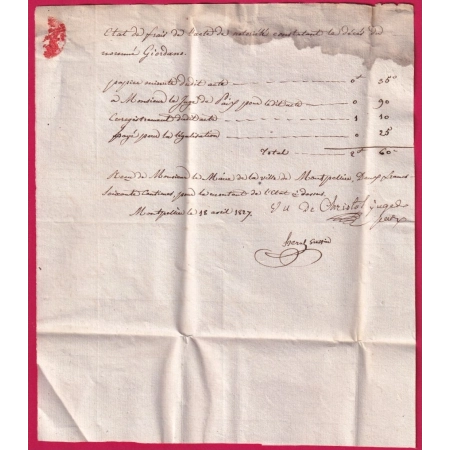 Etat de frais de l'acte de notoriété constatant le décès du
nommé Giordano.
papier minute dudit acte 0 35
à Monsieur le Juge de Paix pour ledit acte 0 90
Enregistrement dudit acte 1 10
payé pour la légalisation 0 25
Total 2 60
Reçu de Monsieur le Maire de la ville de Montpellier, Deux francs
soixante Centimes, pour le montant de l'Etat ci dessus.
Montpellier le 18 avril 1827 Vu De Christol juge de
paix